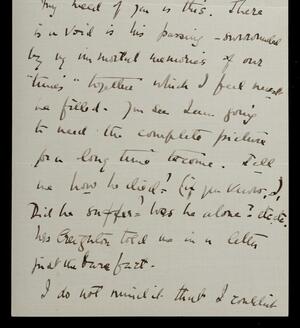 My need of you is this. There
is a void is his passing - surrounded
by my immortal memories of our
"times" together which I feel must
be filled. You see I am going
to need the complete picture
for a long time to come. Tell
me how he died? (if you know?),
Did he suffer? Was he alone? etc. etc.
Mrs Creighton told me in a letter
just the bare fact.
I do not mind it that I couldn't